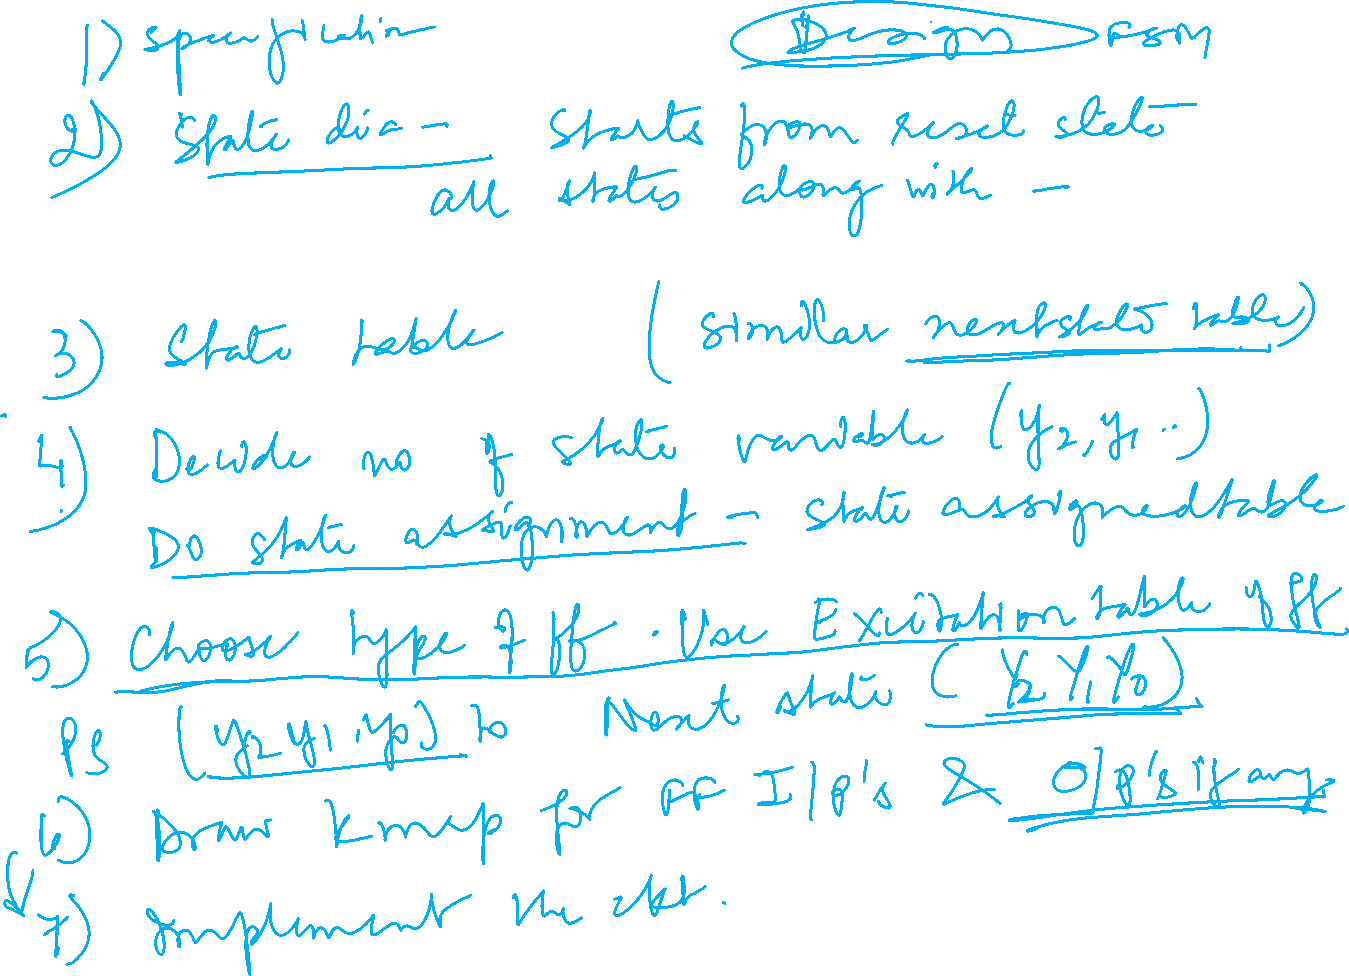 1) specification Design FSM
2) State dia - Starts from reset state
all states along with -
3) State table (similar nextstate table)
4) Decide no of state variable (y2, y1 ..)
Do state assignment - state assignedtable
5) Choose type of ff . Use Excitation table of ff
PS (y2 y1 y0) to Next state (Y2 Y1 Y0).
6) Draw kmap for FF I/P's & O/P's if any
7) Implement the ckt.